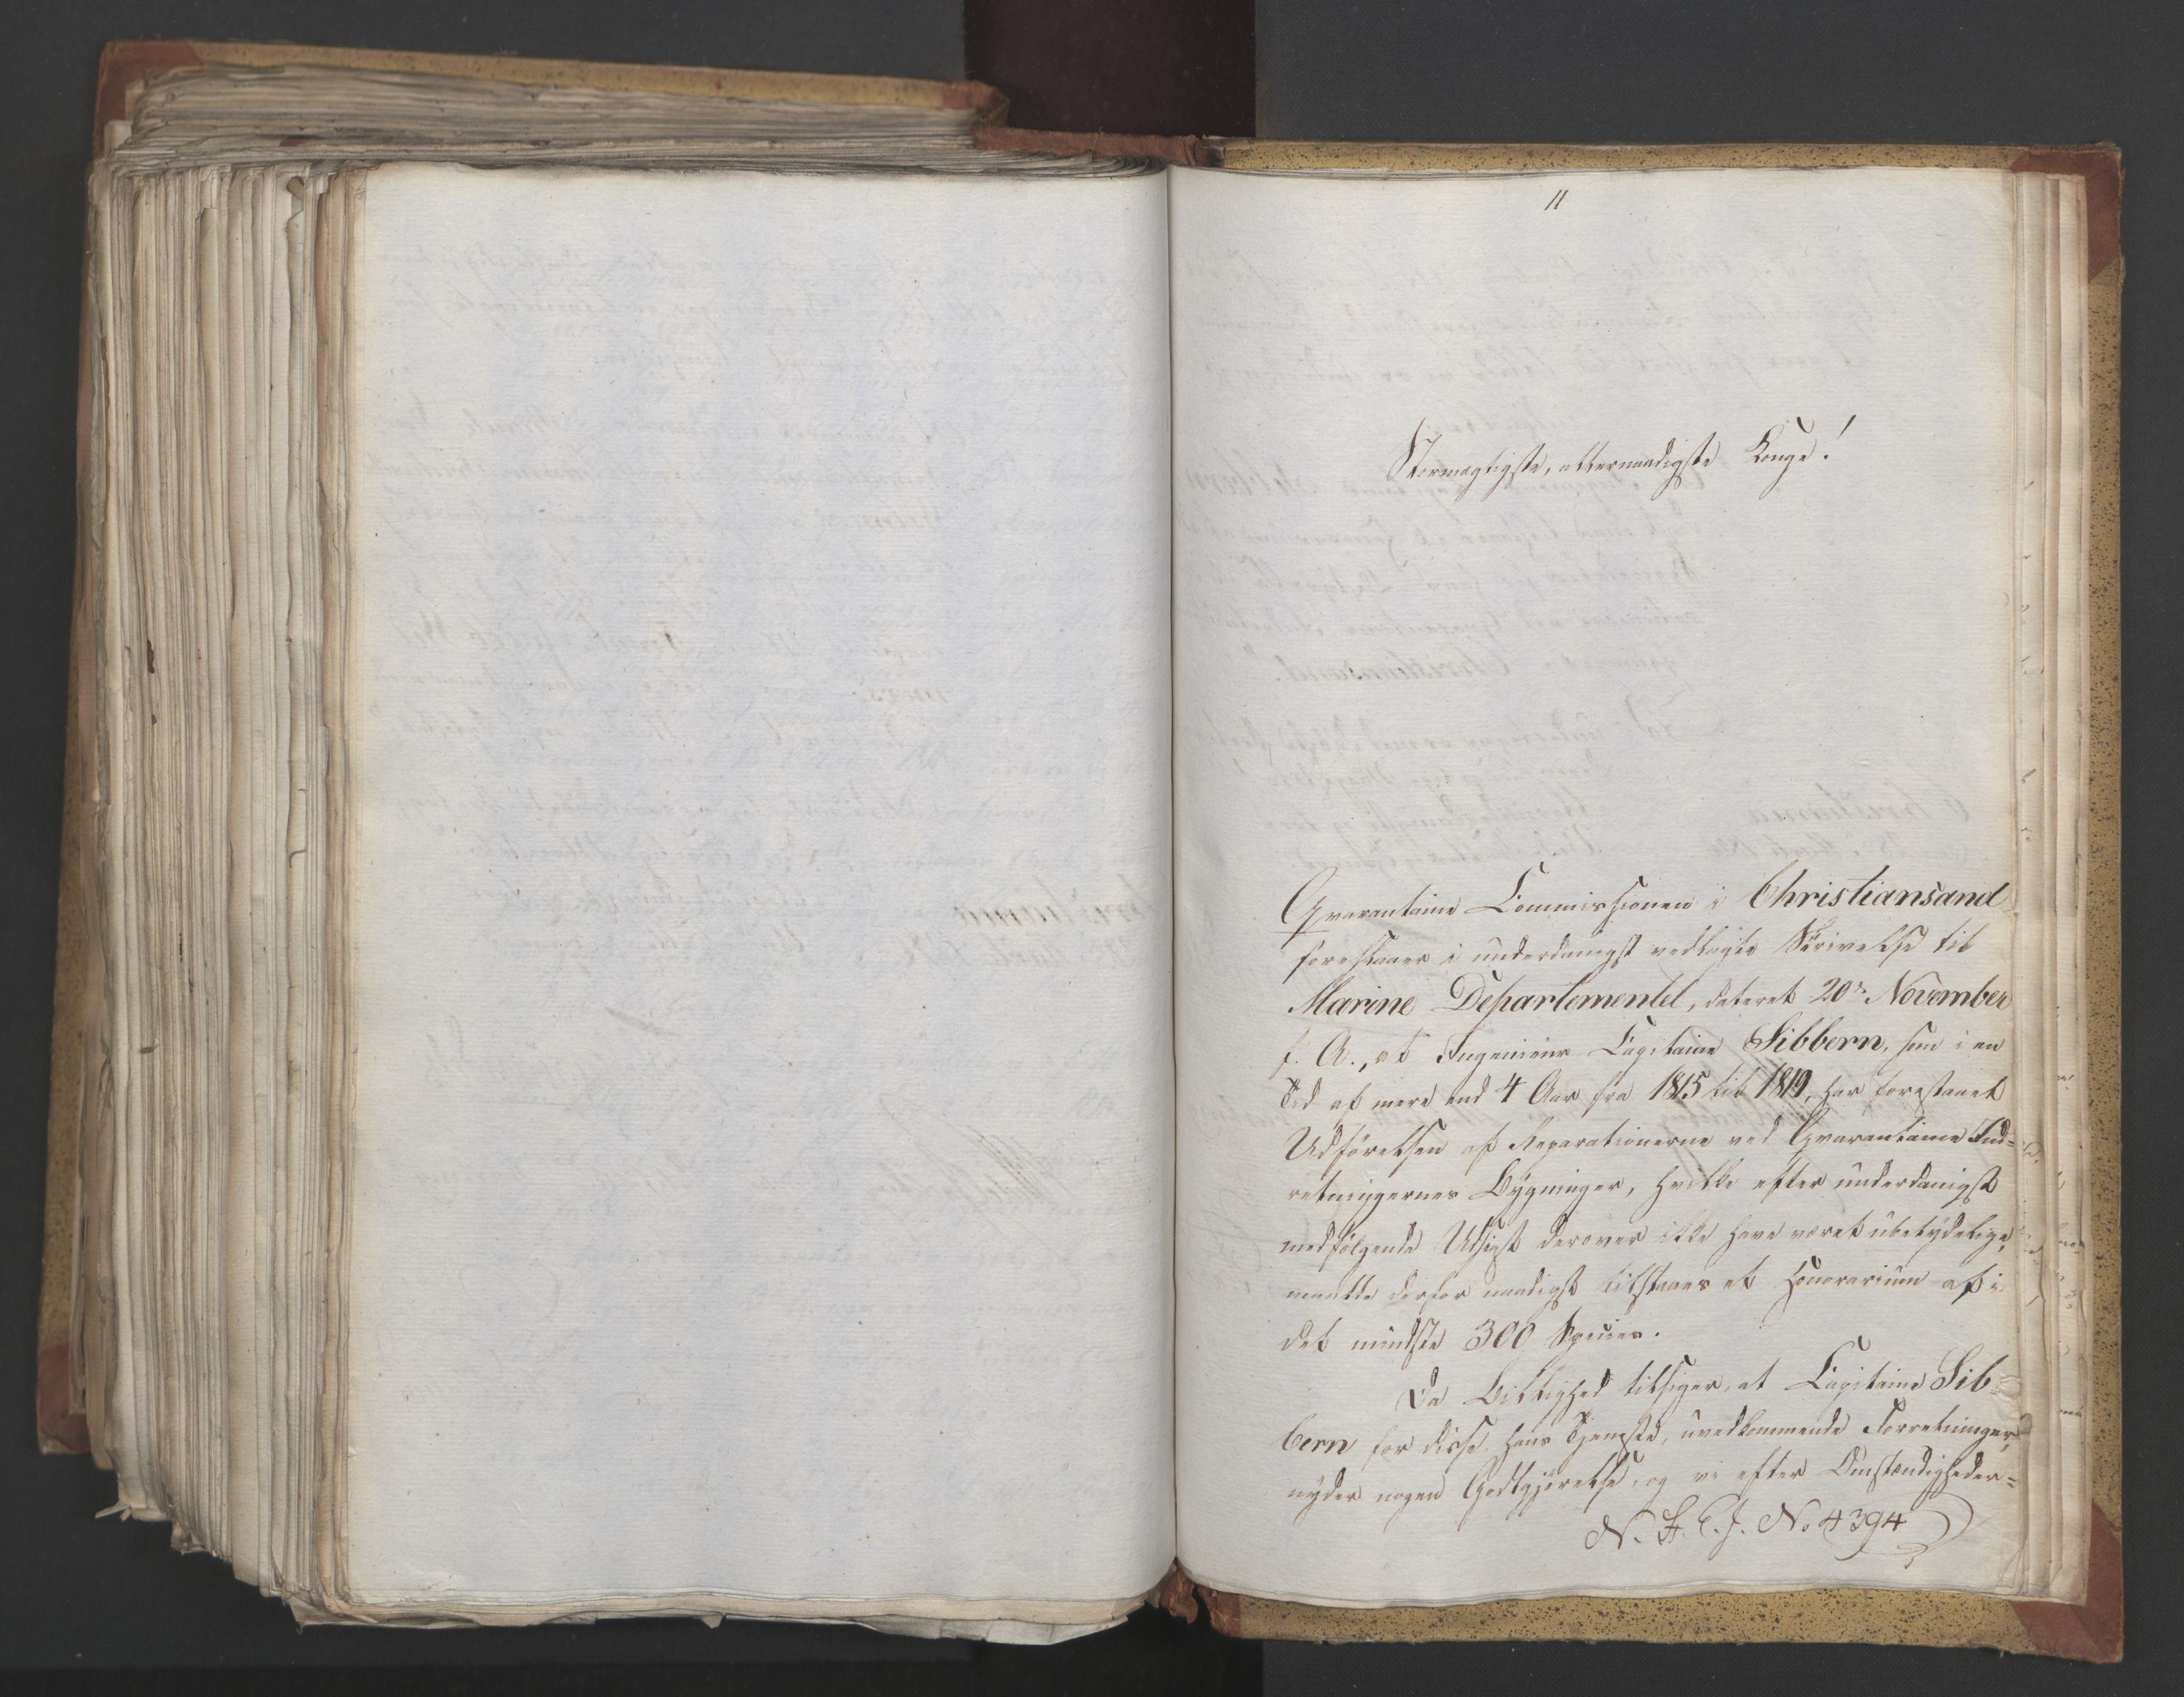 11
Stormægtigste, allernaadigste Konge!
Qvarantaine Commissionen i Christiansand
foreslaaer i underdanigst vedlagte Skrivelse til
Marine Departementet, dateret 20de November
f. A., at Ingenieur Capitaine Sibbern, som i en
Tid af mere end 4 Aar fra 1815 til 1819, har forestaaet
Udførelsen af Reparationerne ved Qvarantaine Ind-
retningernes Bygninger, hvilke efter underdanigst
medfølgende Udsigt derover ikke have været ubetydelige,
maatte derfor naadigst tilstaaes et Honorarium af i
det mindste 300 Species.
Da Billighed tilsiger, at Capitaine Sib-
bern for disse, hans Tjeneste, uvedkommende Forretninger,
nyder nogen Godtgjørelse, og vi efter Omstændigheder-
N. St. C. J. No 4394